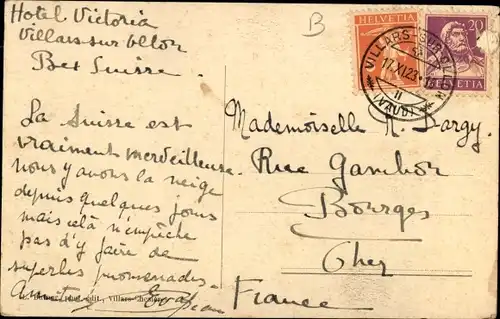 Hotel Victoria
Villars sur Ollon
Bex Suisse.
La Suisse est
vraiment merveilleuse.
nous y avons la neige
depuis quelques jours
mais celà n'empêche
pas d'y faire de
superbes promenades.
Amitiés
B
HELVETIA
20
HELVETIA
VILLARS SUR OLLON
17.XI.23
II
(VAUD)
Mademoiselle
Rue Gambon
Bourges
Cher
France
édit., Villars-Chesières